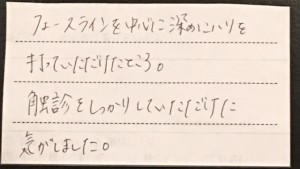 フェースラインを中心に深めにハリを
打っていただけたところ。
触診をしっかりしていただけた
気がしました。